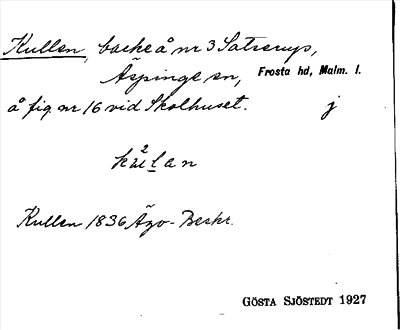 Kullen, backe å nr 3 Satserup,
Äspinge sn, Frosta hd, Malm. l.
å fig. nr 16 vid Skolhuset. j
Kullen 1836 Äzo-Beskr.
GÖSTA SJÖSTEDT 1927